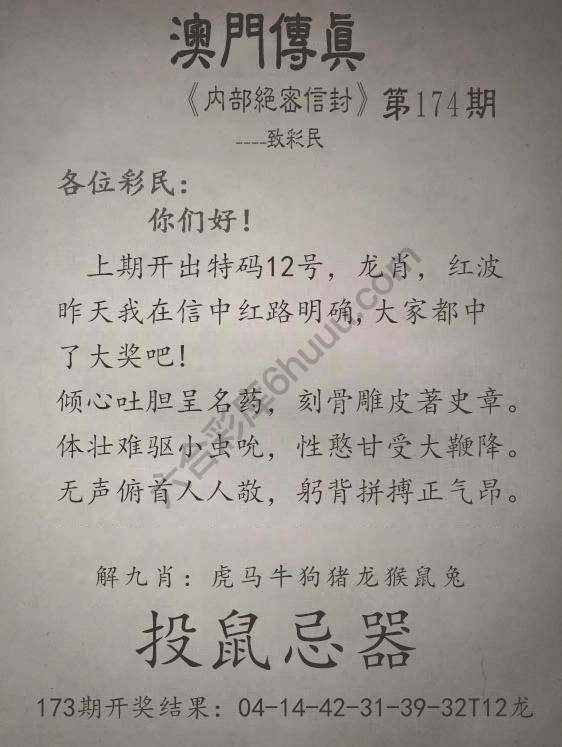 澳門傳真
《内部絕密信封》第174期
----致彩民
各位彩民：
你们好！
上期开出特码12号，龙肖，红波
昨天我在信中红路明确,大家都中
了大奖吧！
倾心吐胆呈名药，刻骨雕皮著史章。
体壮难驱小虫吮，性憨甘受大鞭降。
无声俯首人人敬，躬背拼搏正气昂。
解九肖：虎马牛狗猪龙猴鼠兔
投鼠忌器
173期开奖结果：04-14-42-31-39-32T12龙
六合彩库6huuu.com